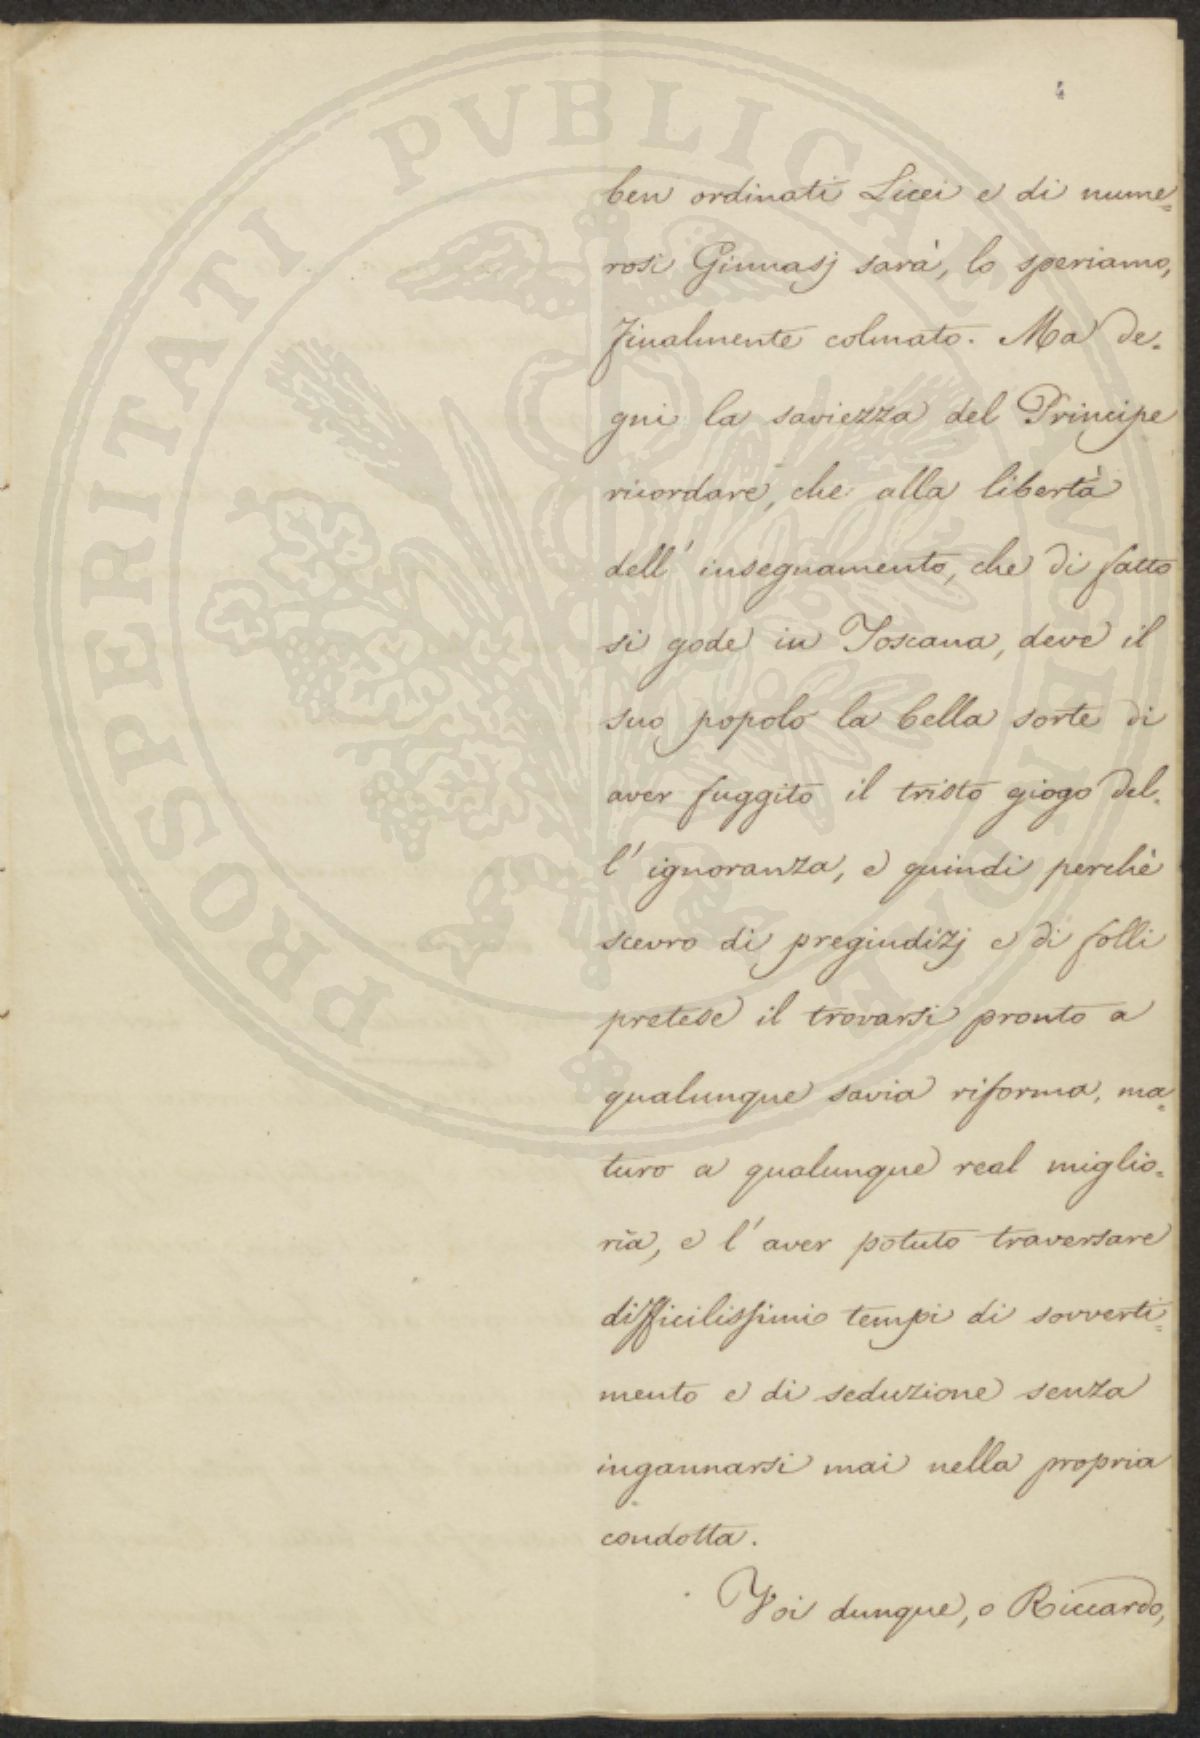 4
PROSPERITATI PUBLICAE AUGENDAE
ben ordinati Licei e di nume=
rosi Ginnasj sarà, lo speriamo,
finalmente colmato. Ma de-
gni la saviezza del Principe
ricordare, che alla libertà
dell' insegnamento, che di fatto
si gode in Toscana, deve il
suo popolo la bella sorte di
aver fuggito il tristo giogo del-
l' ignoranza, e quindi perchè
scevro di pregiudizj e di folli
pretese il trovarsi pronto a
qualunque savia riforma, ma=
turo a qualunque real miglio=
ria, e l' aver potuto traversare
difficilissimi tempi di sovverti=
mento e di seduzione senza
ingannarsi mai nella propria
condotta.
Voi dunque, o Riccardo,